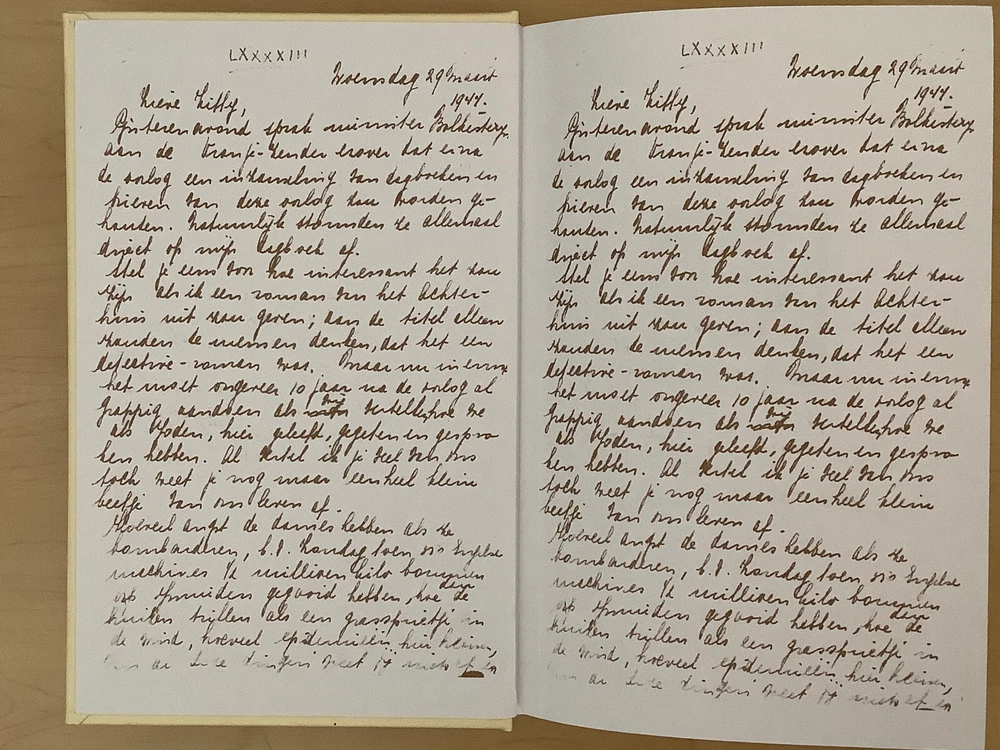 LXXXXIII
Woensdag 29 Maart
1944.
Lieve Kitty,
Gisterenavond sprak minister Bolkesteyn
aan de Oranje-zender erover dat er na
de oorlog een inzameling van dagboeken en
brieven van deze oorlog zou worden ge-
houden. Natuurlijk stormden ze allemaal
direct op mijn dagboek af.
Stel je eens voor hoe interessant het zou
zijn als ik een roman van het Achter-
huis uit zou geven; aan de titel alleen
zouden de mensen denken, dat het een
detective-roman was. Maar nu in ernst
het moet ongeveer 10 jaar na de oorlog al
grappig aandoen als wij vertellen, hoe we
als Joden, hier geleefd, gegeten en gespro
ken hebben. Al vertel ik je veel van ons
toch weet je nog maar een heel klein
beetje van ons leven af.
Hoeveel angst de dames hebben als ze
bombarderen, b.v. Zondag toen Engelse
machines 1/2 millioen kilo bommen
op Ijmuiden gegooid hebben, hoe dan de
huizen trillen als een grassprietje in
de wind, hoeveel epidemieën hier heersen,
van al deze dingen weet jij niets af en
LXXXXIII
Woensdag 29 Maart
1944.
Lieve Kitty,
Gisterenavond sprak minister Bolkesteyn
aan de Oranje-zender erover dat er na
de oorlog een inzameling van dagboeken en
brieven van deze oorlog zou worden ge-
houden. Natuurlijk stormden ze allemaal
direct op mijn dagboek af.
Stel je eens voor hoe interessant het zou
zijn als ik een roman van het Achter-
huis uit zou geven; aan de titel alleen
zouden de mensen denken, dat het een
detective-roman was. Maar nu in ernst
het moet ongeveer 10 jaar na de oorlog al
grappig aandoen als wij vertellen, hoe we
als Joden, hier geleefd, gegeten en gespro
ken hebben. Al vertel ik je veel van ons
toch weet je nog maar een heel klein
beetje van ons leven af.
Hoeveel angst de dames hebben als ze
bombarderen, b.v. Zondag toen Engelse
machines 1/2 millioen kilo bommen
op Ijmuiden gegooid hebben, hoe dan de
huizen trillen als een grassprietje in
de wind, hoeveel epidemieën hier heersen,
van al deze dingen weet jij niets af en